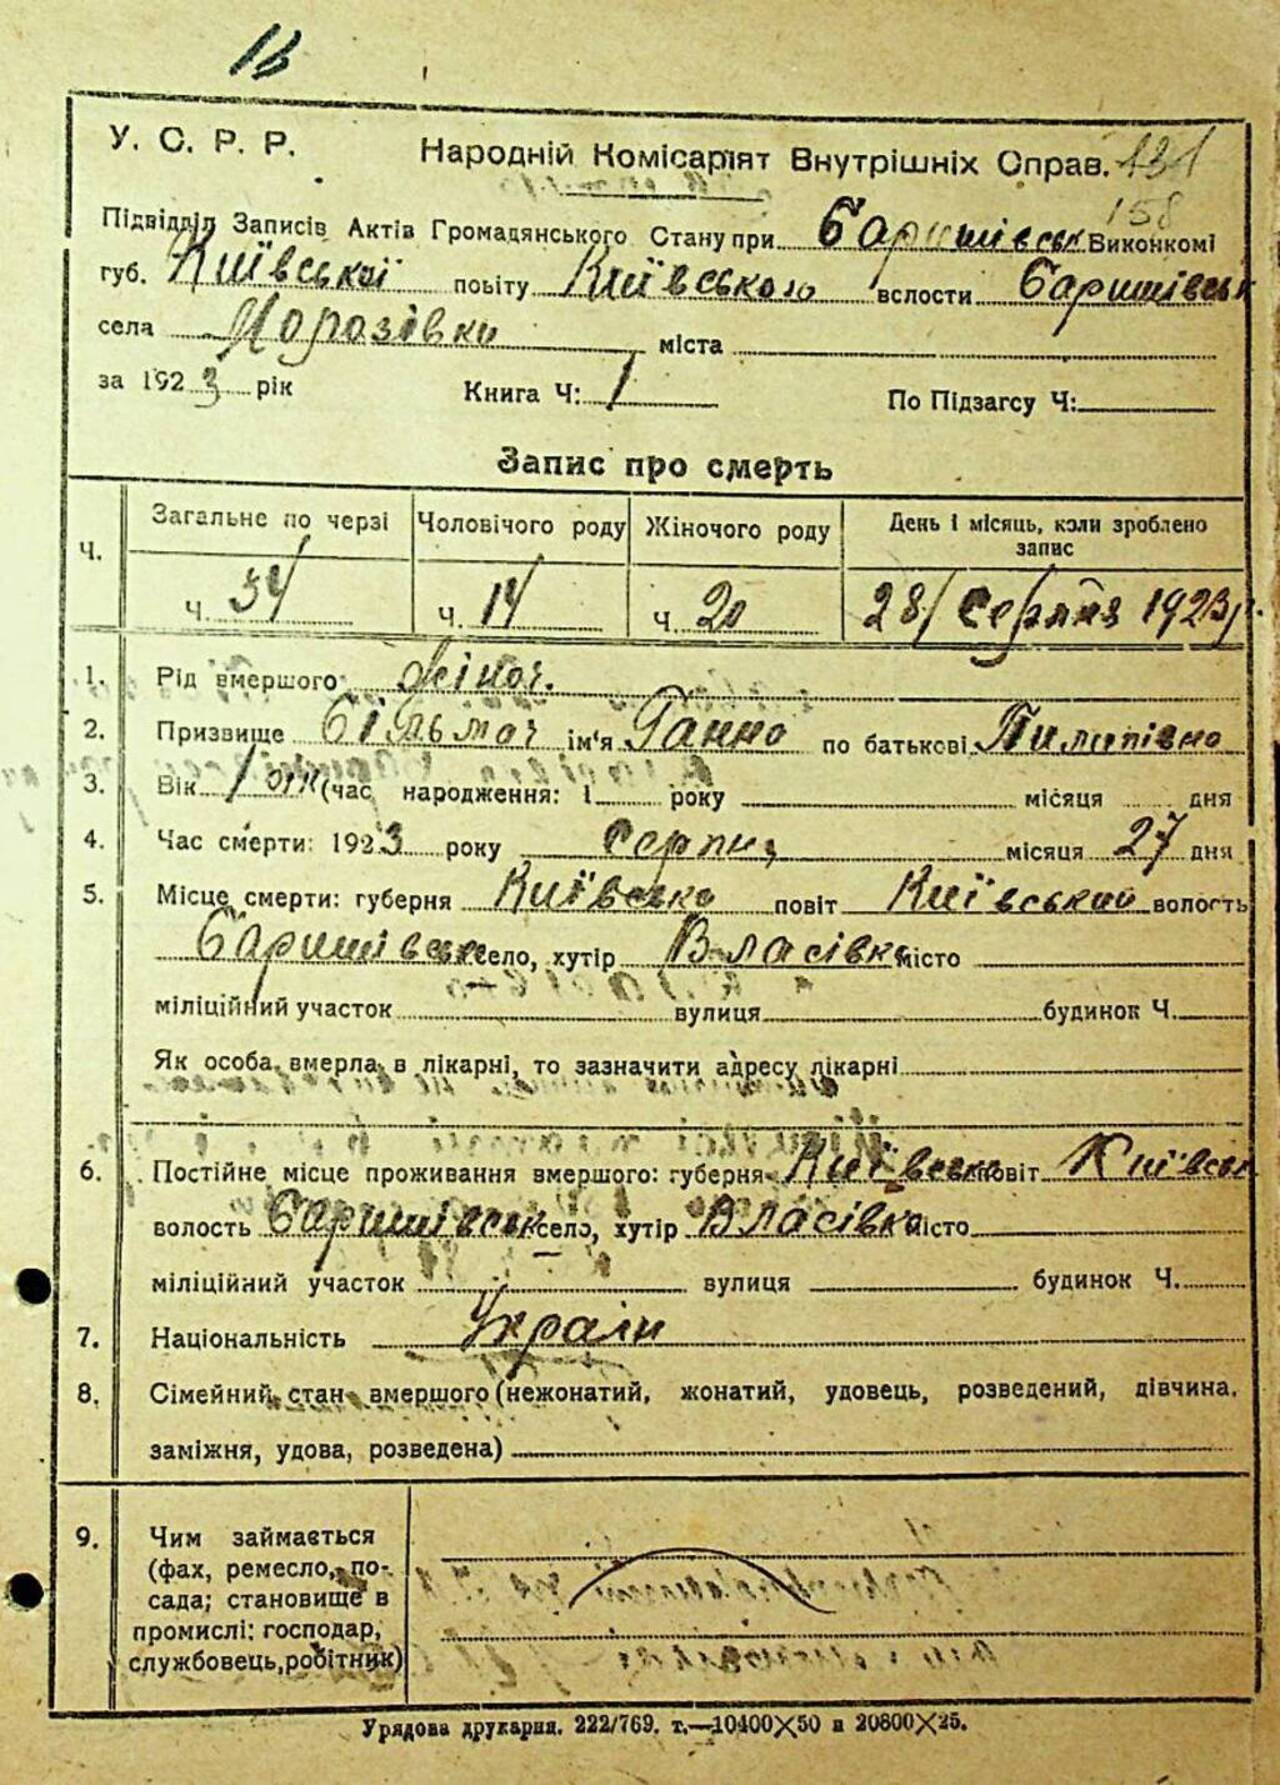 16
У. С. Р. Р. Народній Комісаріят Внутрішніх Справ. 131
158
Підвідділ Записів Актів Громадянського Стану при Баришівськ Виконкомі
губ. Київської повіту Київського волости Баришівськ
села Морозівки міста
за 1923 рік Книга Ч: 1 По Підзагсу Ч:
Запис про смерть
Ч. Загальне по черзі Чоловічого роду Жіночого роду День і місяць, коли зроблено
запис
Ч. 34 Ч. 14 Ч. 20 28/ Серпня 1923 р.
1. Рід вмершого жіноч.
2. Призвище ім'я Ганна по батькові Пилипівна
3. Вік 1 (час народження: 1 року місяця дня
4. Час смерти: 1923 року Серпня місяця 27 дня
5. Місце смерти: губерня Київська повіт Київський волость
Баришівська село, хутір Власівка місто
міліційний участок вулиця будинок Ч.
Як особа вмерла в лікарні, то зазначити адресу лікарні
6. Постійне місце проживання вмершого: губерня Київська повіт Київськ
волость Баришівськ село, хутір Власівка місто
міліційний участок вулиця будинок Ч.
7. Національність Украін
8. Сімейний стан вмершого (нежонатий, жонатий, удовець, розведений, дівчина,
заміжня, удова, розведена)
9. Чим займається
(фах, ремесло, по-
сада; становище в
промислі: господар,
службовець, робітник)
Урядова друкарня. 222/769. т.—10400×50 и 20800×25.